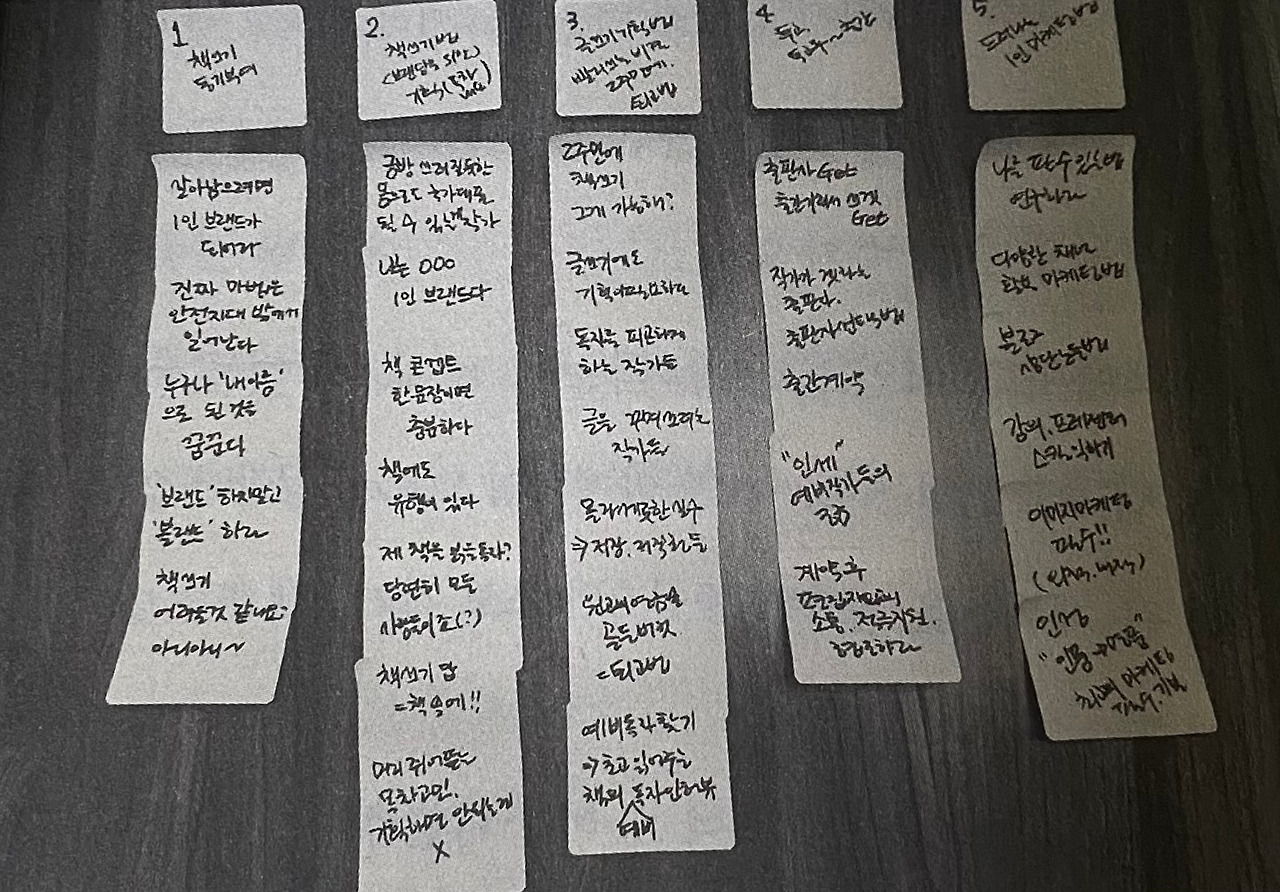 1.
책쓰기
동기부여
살아남으려면
1인 브랜드가
되어라
진짜 마법은
안전지대 밖에서
일어난다
누구나 '내이름'
으로 된 것을
꿈꾼다
'브랜드' 하지말고
'블랜드' 하라
책쓰기
어려울것 같나요?
아니아니~
2.
책쓰기법
기획(독자
금방 쓰러질듯한
몸으로도 국가대표
될 수 있는 작가
나는 OOO
1인 브랜드다
책 콘셉트
한 문장이면
충분하다
책에도
유형이 있다
제 책을 읽을 독자?
당연히 모든
사람들이죠(?)
책쓰기 답
=책 속에!!
머리 쥐어뜯는
목차고민.
기획하면 안되는게
X
3.
글쓰기 기획법
빨리쓰는 비결
2주만에.
퇴고법
2주만에
책쓰기
그게 가능해?
글쓰기에도
기획이 필요하다
독자를 피곤하게
하는 작가들
글을 꾸며 쓰려는
작가들
몰라서 못한 실수
→ 저장, 저작권 등
원고에 여금을
골든버켓
=퇴고법
예비독자 찾기
→ 초고 읽어주는
책의 독자 인터뷰
예비
4
투고
5.
드러나는
1인 마케팅법
출판사 Get
출간기획서 쓰는것
Get
작가가 갯하는
출판사.
출판사 선택법
출간계약
"인세"
예비작가들의
계약 후
편집자와의
소통, 적극지원.
협조하라
나를 팔 수 있는법
연구하라
다양한 채널
확보 마케팅법
강의, 프레젠테
스킬 익히기
이미지마케팅
필수!!
(외적, 내적)
인성
최고의 마케팅